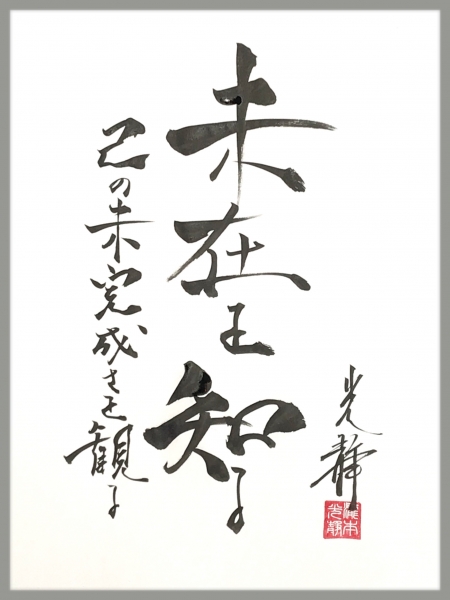 未在を知る
己の未完成さを観る
光静